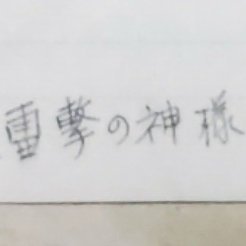 雷撃の神様